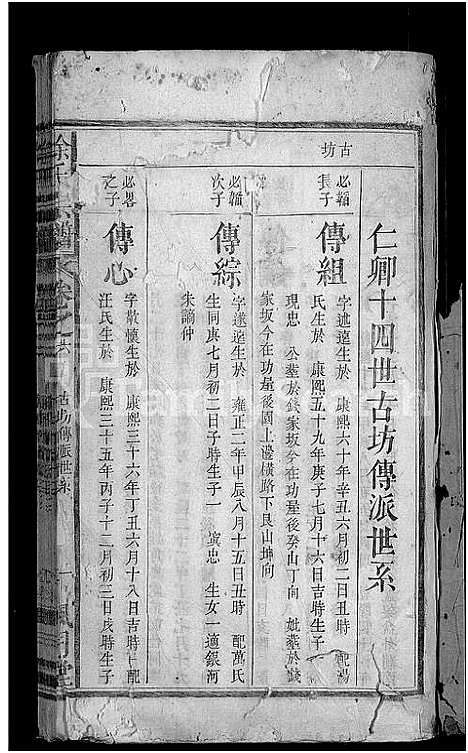 仁卿十四世古坊傳派世系
古坊
必韜長子
傳組
字述遠生於 康熙六十年辛丑六月初二日丑時 配湯
氏生於 康熙五十九年庚子七月十六日吉時生子一
現忠 公塋於錢家坂今在功壘後癸山丁向 妣塋於錢
家坂今在功壘後園上邊橫路下艮山坤向
必韜次子
傳綜
字遂遠生於 雍正二年甲辰八月十五日丑時 配萬氏
生同庚七月初二日子時生子一 濱忠 生女一適銀河
朱謫仲
必畧之子
傳心
字散懷生於 康熙三十六年丁丑六月十八日吉時 配
汪氏生於 康熙三十五年丙子十二月初三日戌時生子
余氏宗譜
卷之六
古坊傳派世系
一